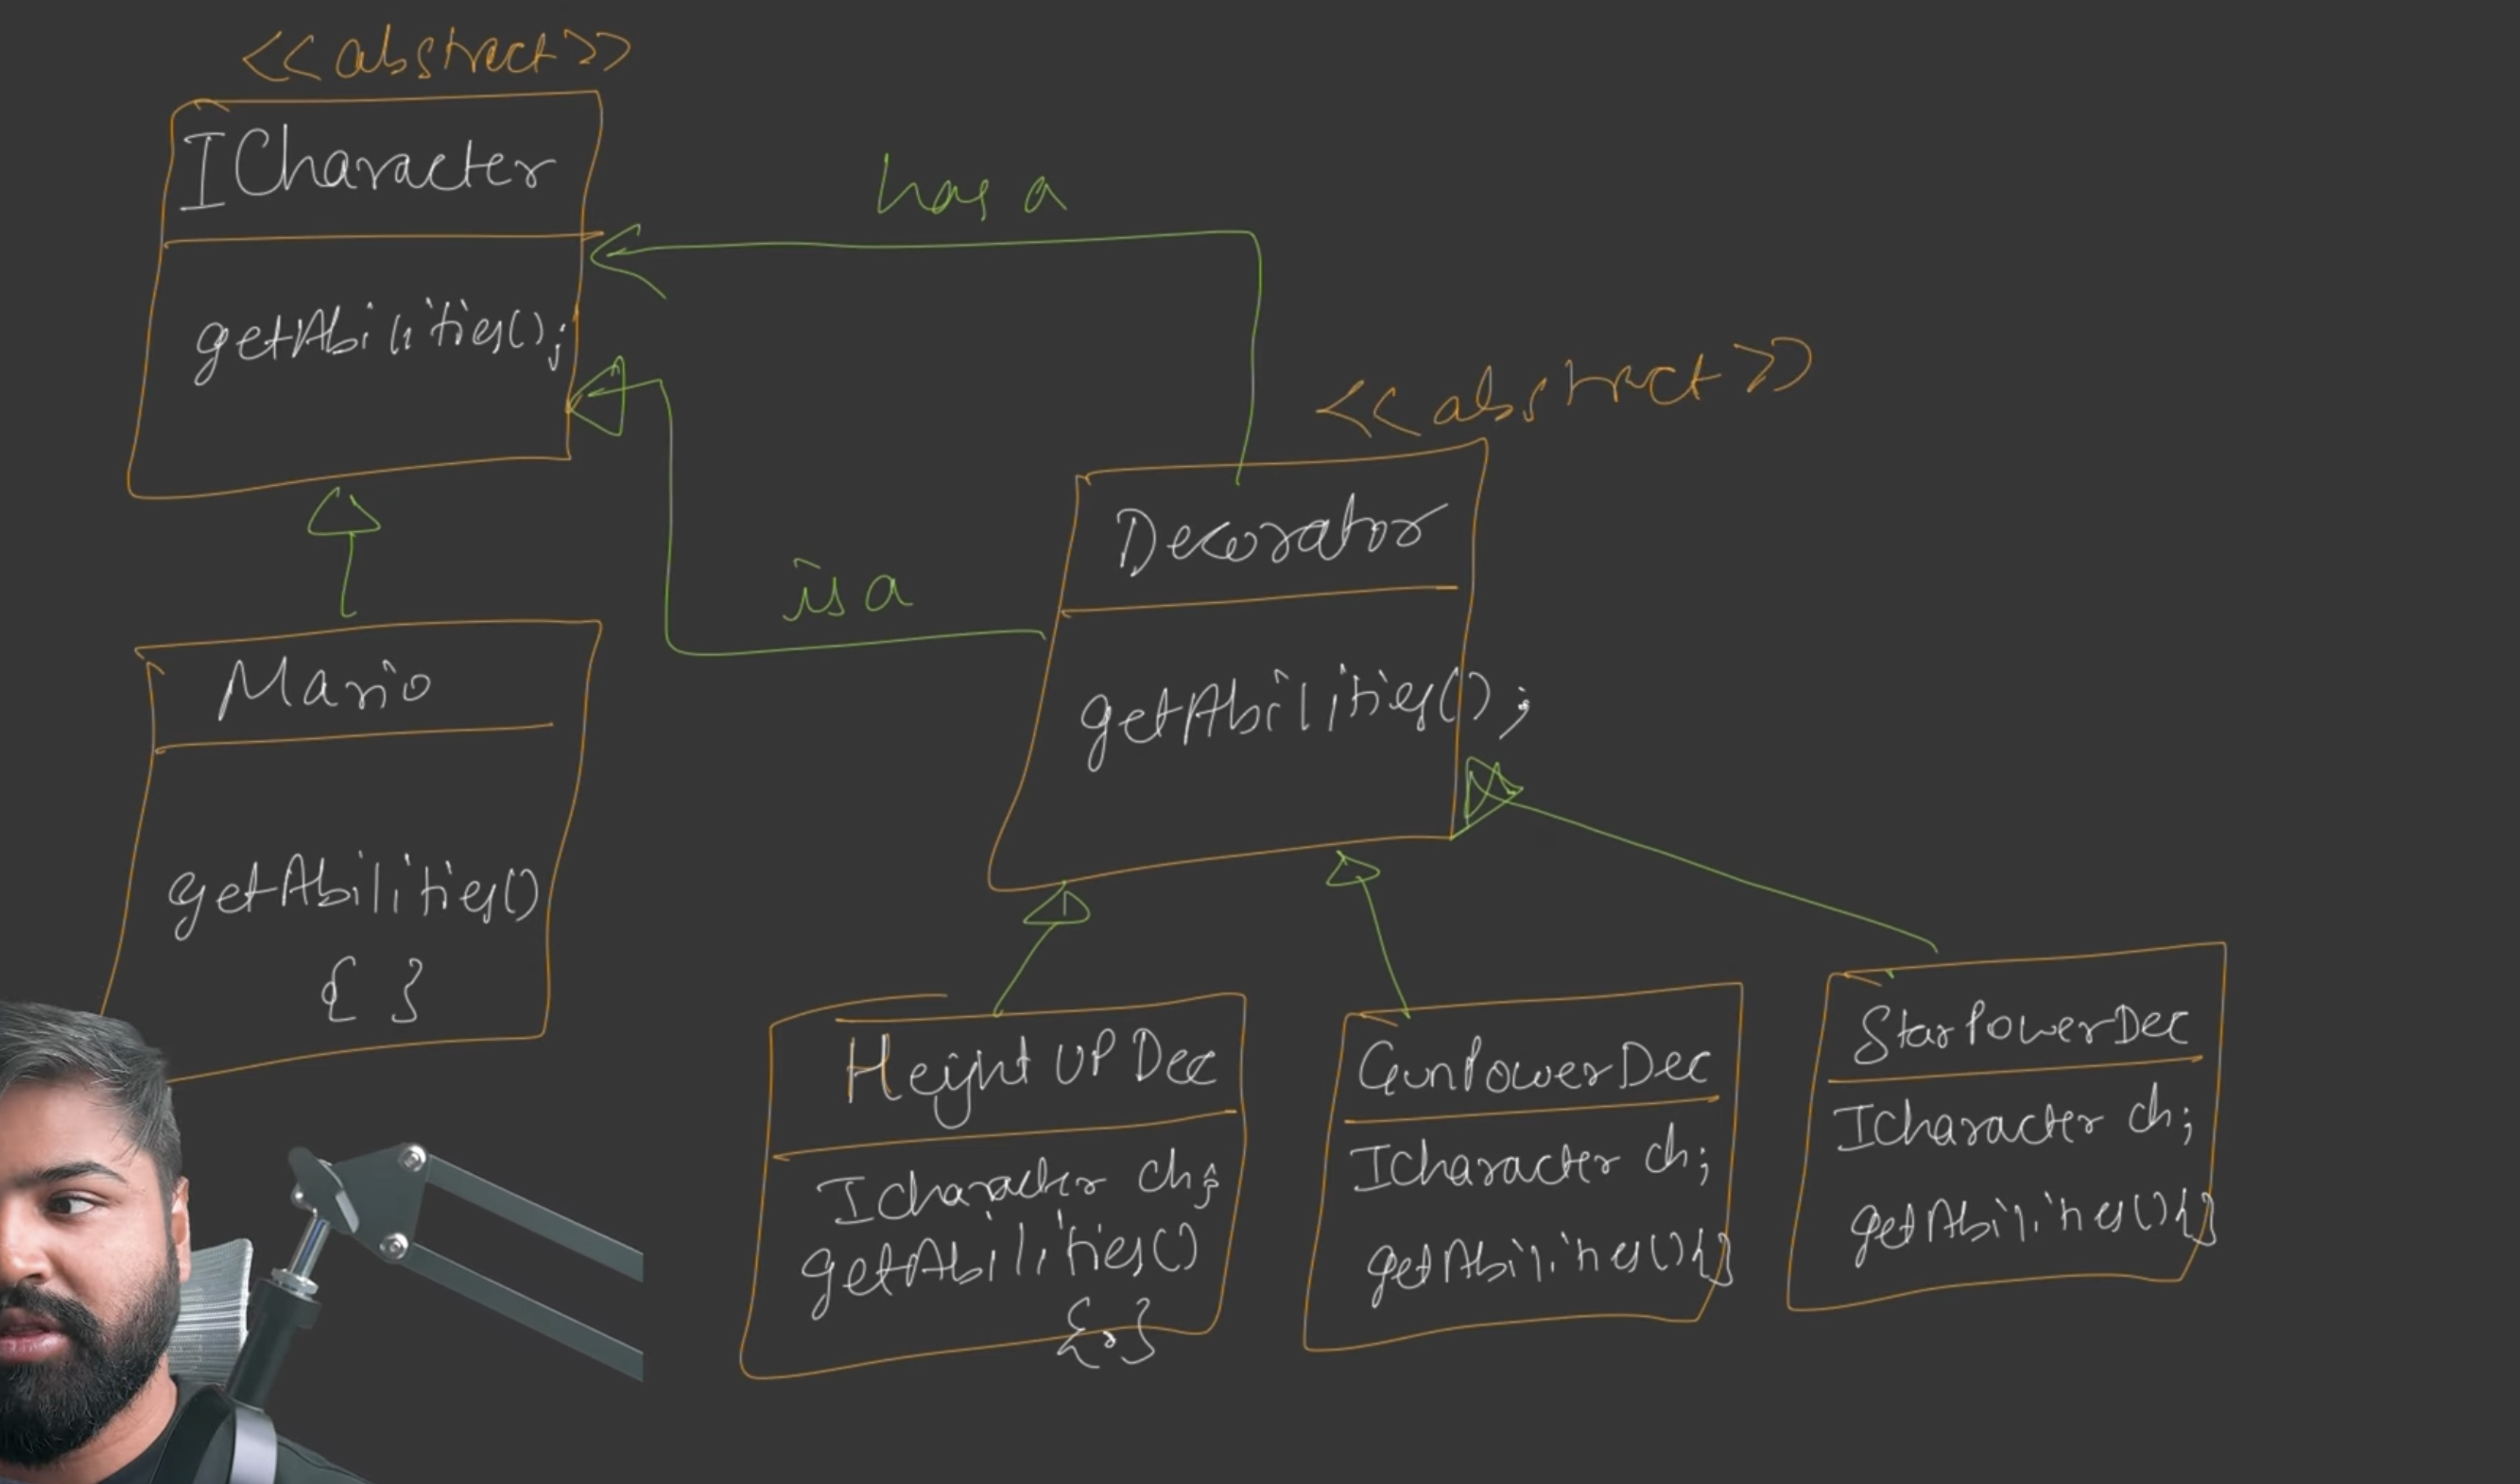 <<abstract>>
ICharacter
getAbilities();
has a
is a
<<abstract>>
Decorator
getAbilities();
Mario
getAbilities()
{ }
HeightUPDec
ICharacter ch;
getAbilities()
{ }
GunPowerDec
ICharacter ch;
getAbilities(){}
StarPowerDec
ICharacter ch;
getAbilities(){}